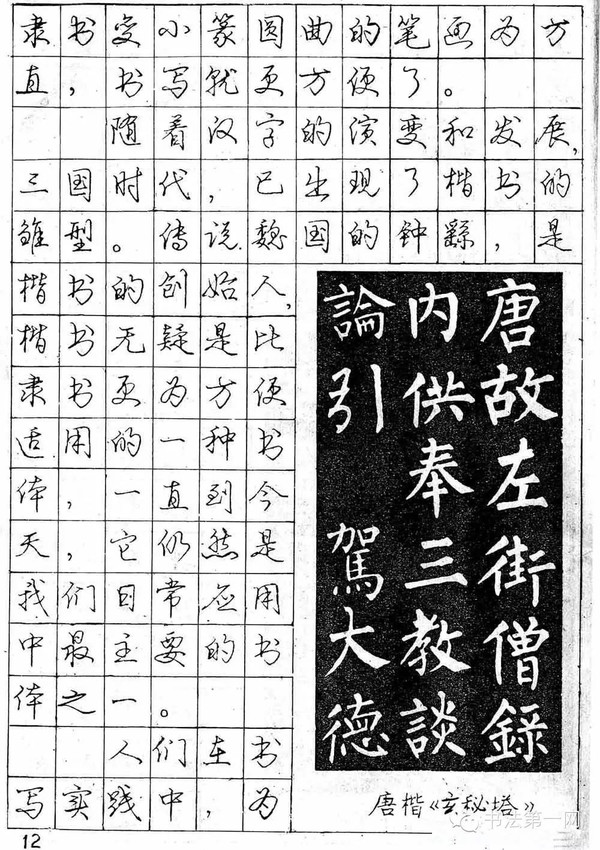 隶书变小篆圆曲的笔画为方
直，书写就更方便了。
随着汉字的演变和发展，
三国时代，已出现了楷书的
雏型。传说魏国的钟繇，是
楷书的创始人，
楷书无疑是比
隶书更为方便
适用的一种书
体，一直到今
天，它仍然是
我们日常应用
中最主要的书
体之一。
人们在书
写实践中，为
唐故左街僧錄
内供奉三教談
論引 駕大德
唐楷《玄秘塔》
书法第一网
12